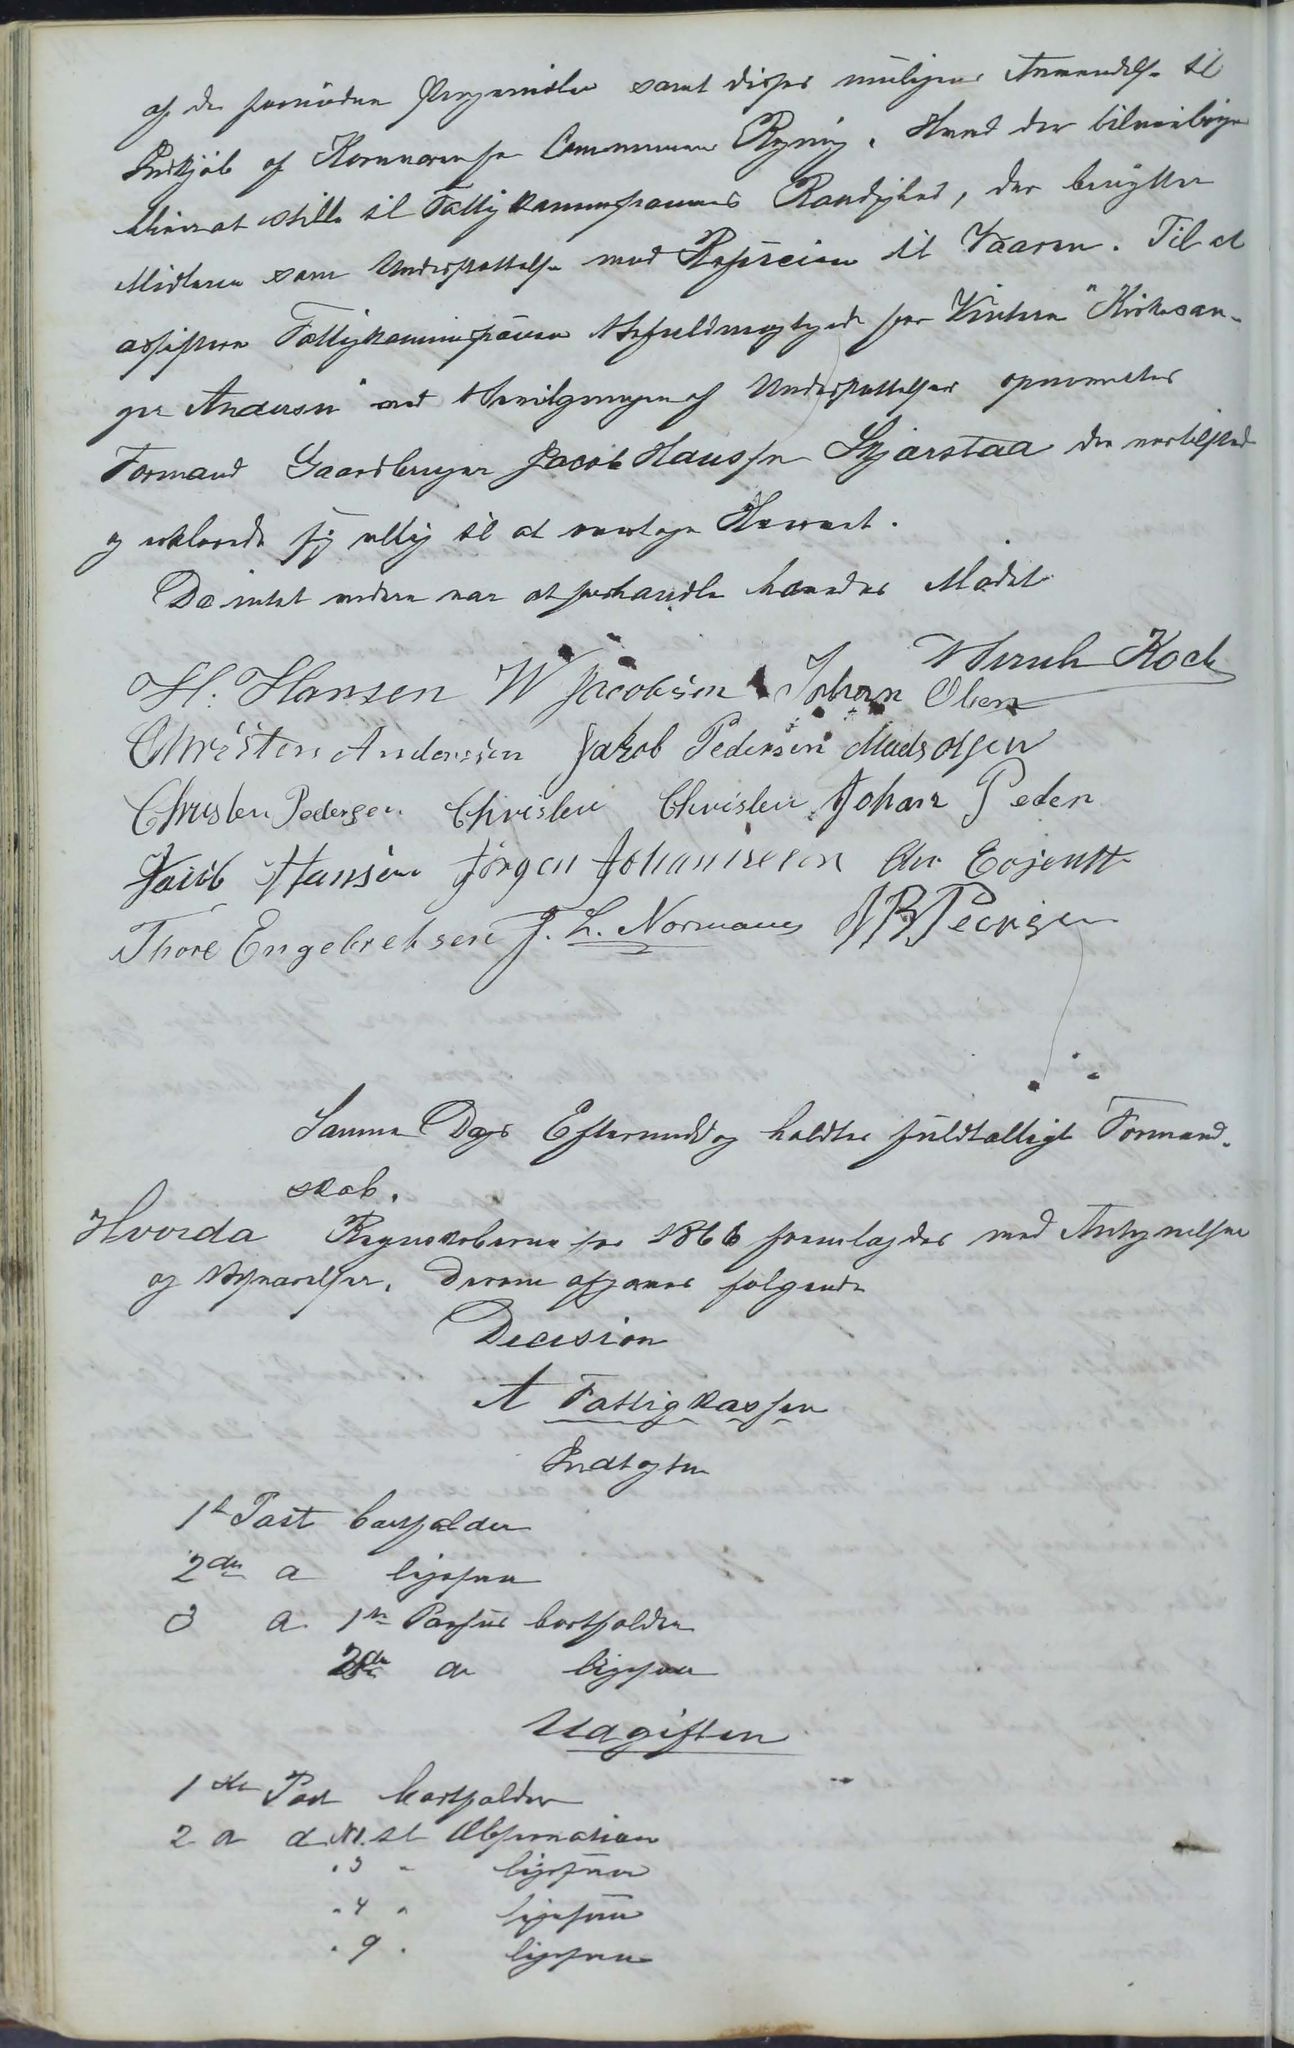 af de fornødne Pengemidler samt disses muligens Anvendelse til
Indkjøb af Kornvarer for Communens Regning. Hvad der tilveiebringes
bliver at stille til Fattigkommissionens Raadighed, der benytter
Midlerne som Understøttelse med Refusion til Vaaren. Til at
assistere Fattigkommissionen befuldmægtigede for Vinteren "Kirkesan-
ger Andersen" ved Bevilgningen af Understøttelser opnævntes
Formand Gaardbruger Jacob Hanssen Skjærstaa der var tilstede
og erklærede sig villig til at modtage Hvervet.
Da intet videre var at forhandle hævedes Mødet
Bernh Koch
H. Hansen W Jacobsen Johan Olsen
Christen Andersen Jakob Pedersen Mads Olsen
Christen Pedersen Christen Christen Johan Peder
Jacob Hansen Jörgen Johannesen Chr
Thore Engebretsen J. L. Normann Pedersen
Samme Dags Eftermiddag holdtes fuldtalligt Formand-
skab.
Hvorda Regnskaberne for 1866 fremlagdes med Antegnelser
og Besvarelser. Derom afgaves følgende
Decision
A Fattigkassen
Indtægten
1ste Post bortfalder
2den do ligesaa
3 do 1ste Passus bortfalder
2den do ligesaa
Udgiften
1ste Post bortfalder
2 do do No 1. til Observation
" 3 " ligesaa
" 4 " ligesaa
" 9 " ligesaa